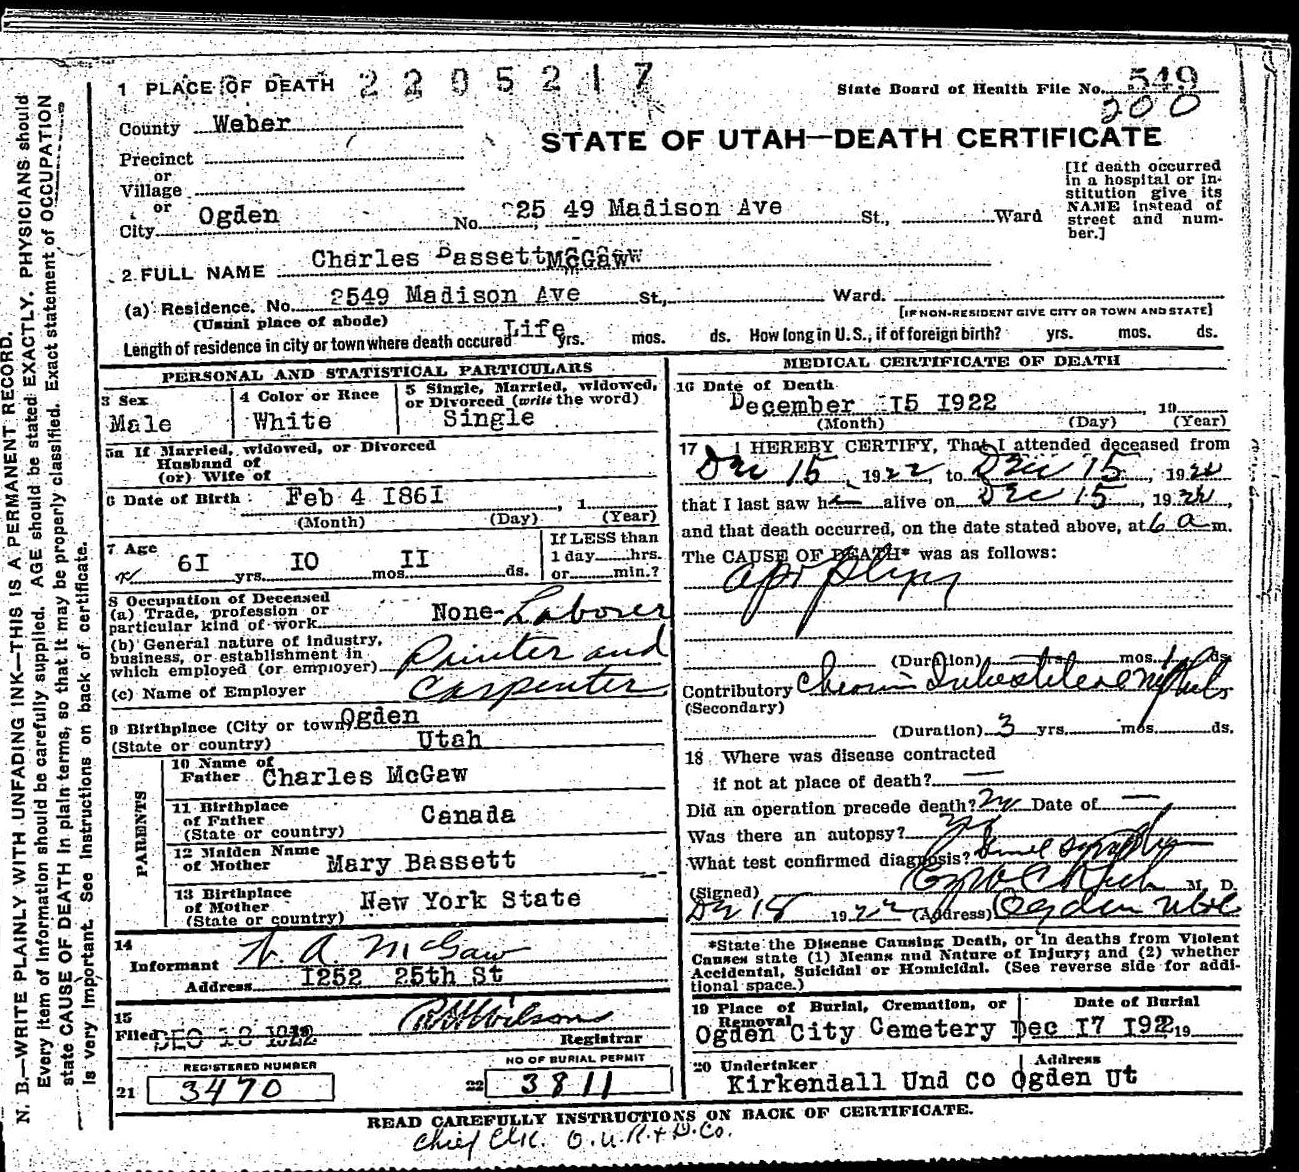 1 PLACE OF DEATH 2205217
State Board of Health File No. 549
200
County Weber
STATE OF UTAH—DEATH CERTIFICATE
Precinct
or
Village
or
City Ogden No. 25 49 Madison Ave St., Ward
[If death occurred
in a hospital or in-
stitution give its
NAME instead of
street and num-
ber.]
2 FULL NAME Charles Bassett McGaw
(a) Residence. No. 2549 Madison Ave St., Ward.
(Usual place of abode) [IF NON-RESIDENT GIVE CITY OR TOWN AND STATE]
Length of residence in city or town where death occured Life yrs. mos. ds. How long in U.S., if of foreign birth? yrs. mos. ds.
PERSONAL AND STATISTICAL PARTICULARS
3 Sex
Male
4 Color or Race
White
5 Single, Married, widowed,
or Divorced (write the word)
Single
5a If Married, widowed, or Divorced
Husband of
(or) Wife of
6 Date of Birth Feb 4 I86I , 1
(Month) (Day) (Year)
7 Age
6I yrs. IO mos. II ds.
If LESS than
1 day hrs.
or min.?
8 Occupation of Deceased
(a) Trade, profession or
particular kind of work None- Laborer
(b) General nature of industry,
business, or establishment in
which employed (or employer) Painter and
(c) Name of Employer Carpenter
9 Birthplace (City or town) Ogden
(State or country) Utah
PARENTS
10 Name of
Father Charles McGaw
11 Birthplace
of Father Canada
(State or country)
12 Maiden Name
of Mother Mary Bassett
13 Birthplace
of Mother New York State
(State or country)
14
Informant A McGaw
Address I252 25th St
15
Filed DEC 18 1922
Registrar Wilson
REGISTERED NUMBER
21 3470
NO OF BURIAL PERMIT
22 3811
MEDICAL CERTIFICATE OF DEATH
16 Date of Death
December I5 I922 , 19
(Month) (Day) (Year)
17 I HEREBY CERTIFY, That I attended deceased from
Dec 15, 1922, to Dec 15, 1922
that I last saw him alive on Dec 15, 1922,
and that death occurred, on the date stated above, at 6 a m.
The CAUSE OF DEATH* was as follows:
apoplexy
(Duration) yrs. mos. 1 ds.
Contributory Chronic Interstitial Nephritis
(Secondary)
(Duration) 3 yrs. mos. ds.
18 Where was disease contracted
if not at place of death? —
Did an operation precede death? no Date of —
Was there an autopsy? no
What test confirmed diagnosis?
(Signed) M. D.
Dec 18 1922 (Address) Ogden Utah
*State the Disease Causing Death, or in deaths from Violent
Causes state (1) Means and Nature of Injury; and (2) whether
Accidental, Suicidal or Homicidal. (See reverse side for addi-
tional space.)
19 Place of Burial, Cremation, or
Removal
Ogden City Cemetery
Date of Burial
Dec I7 I922 19
20 Undertaker
Kirkendall Und Co
Address
Ogden Ut
READ CAREFULLY INSTRUCTIONS ON BACK OF CERTIFICATE.
Chief Clk. O.U.R.+D.Co.
N. B.—WRITE PLAINLY WITH UNFADING INK—THIS IS A PERMANENT RECORD.
Every item of information should be carefully supplied. AGE should be stated EXACTLY. PHYSICIANS should
state CAUSE OF DEATH in plain terms, so that it may be properly classified. Exact statement of OCCUPATION
is very important. See Instructions on back of certificate.